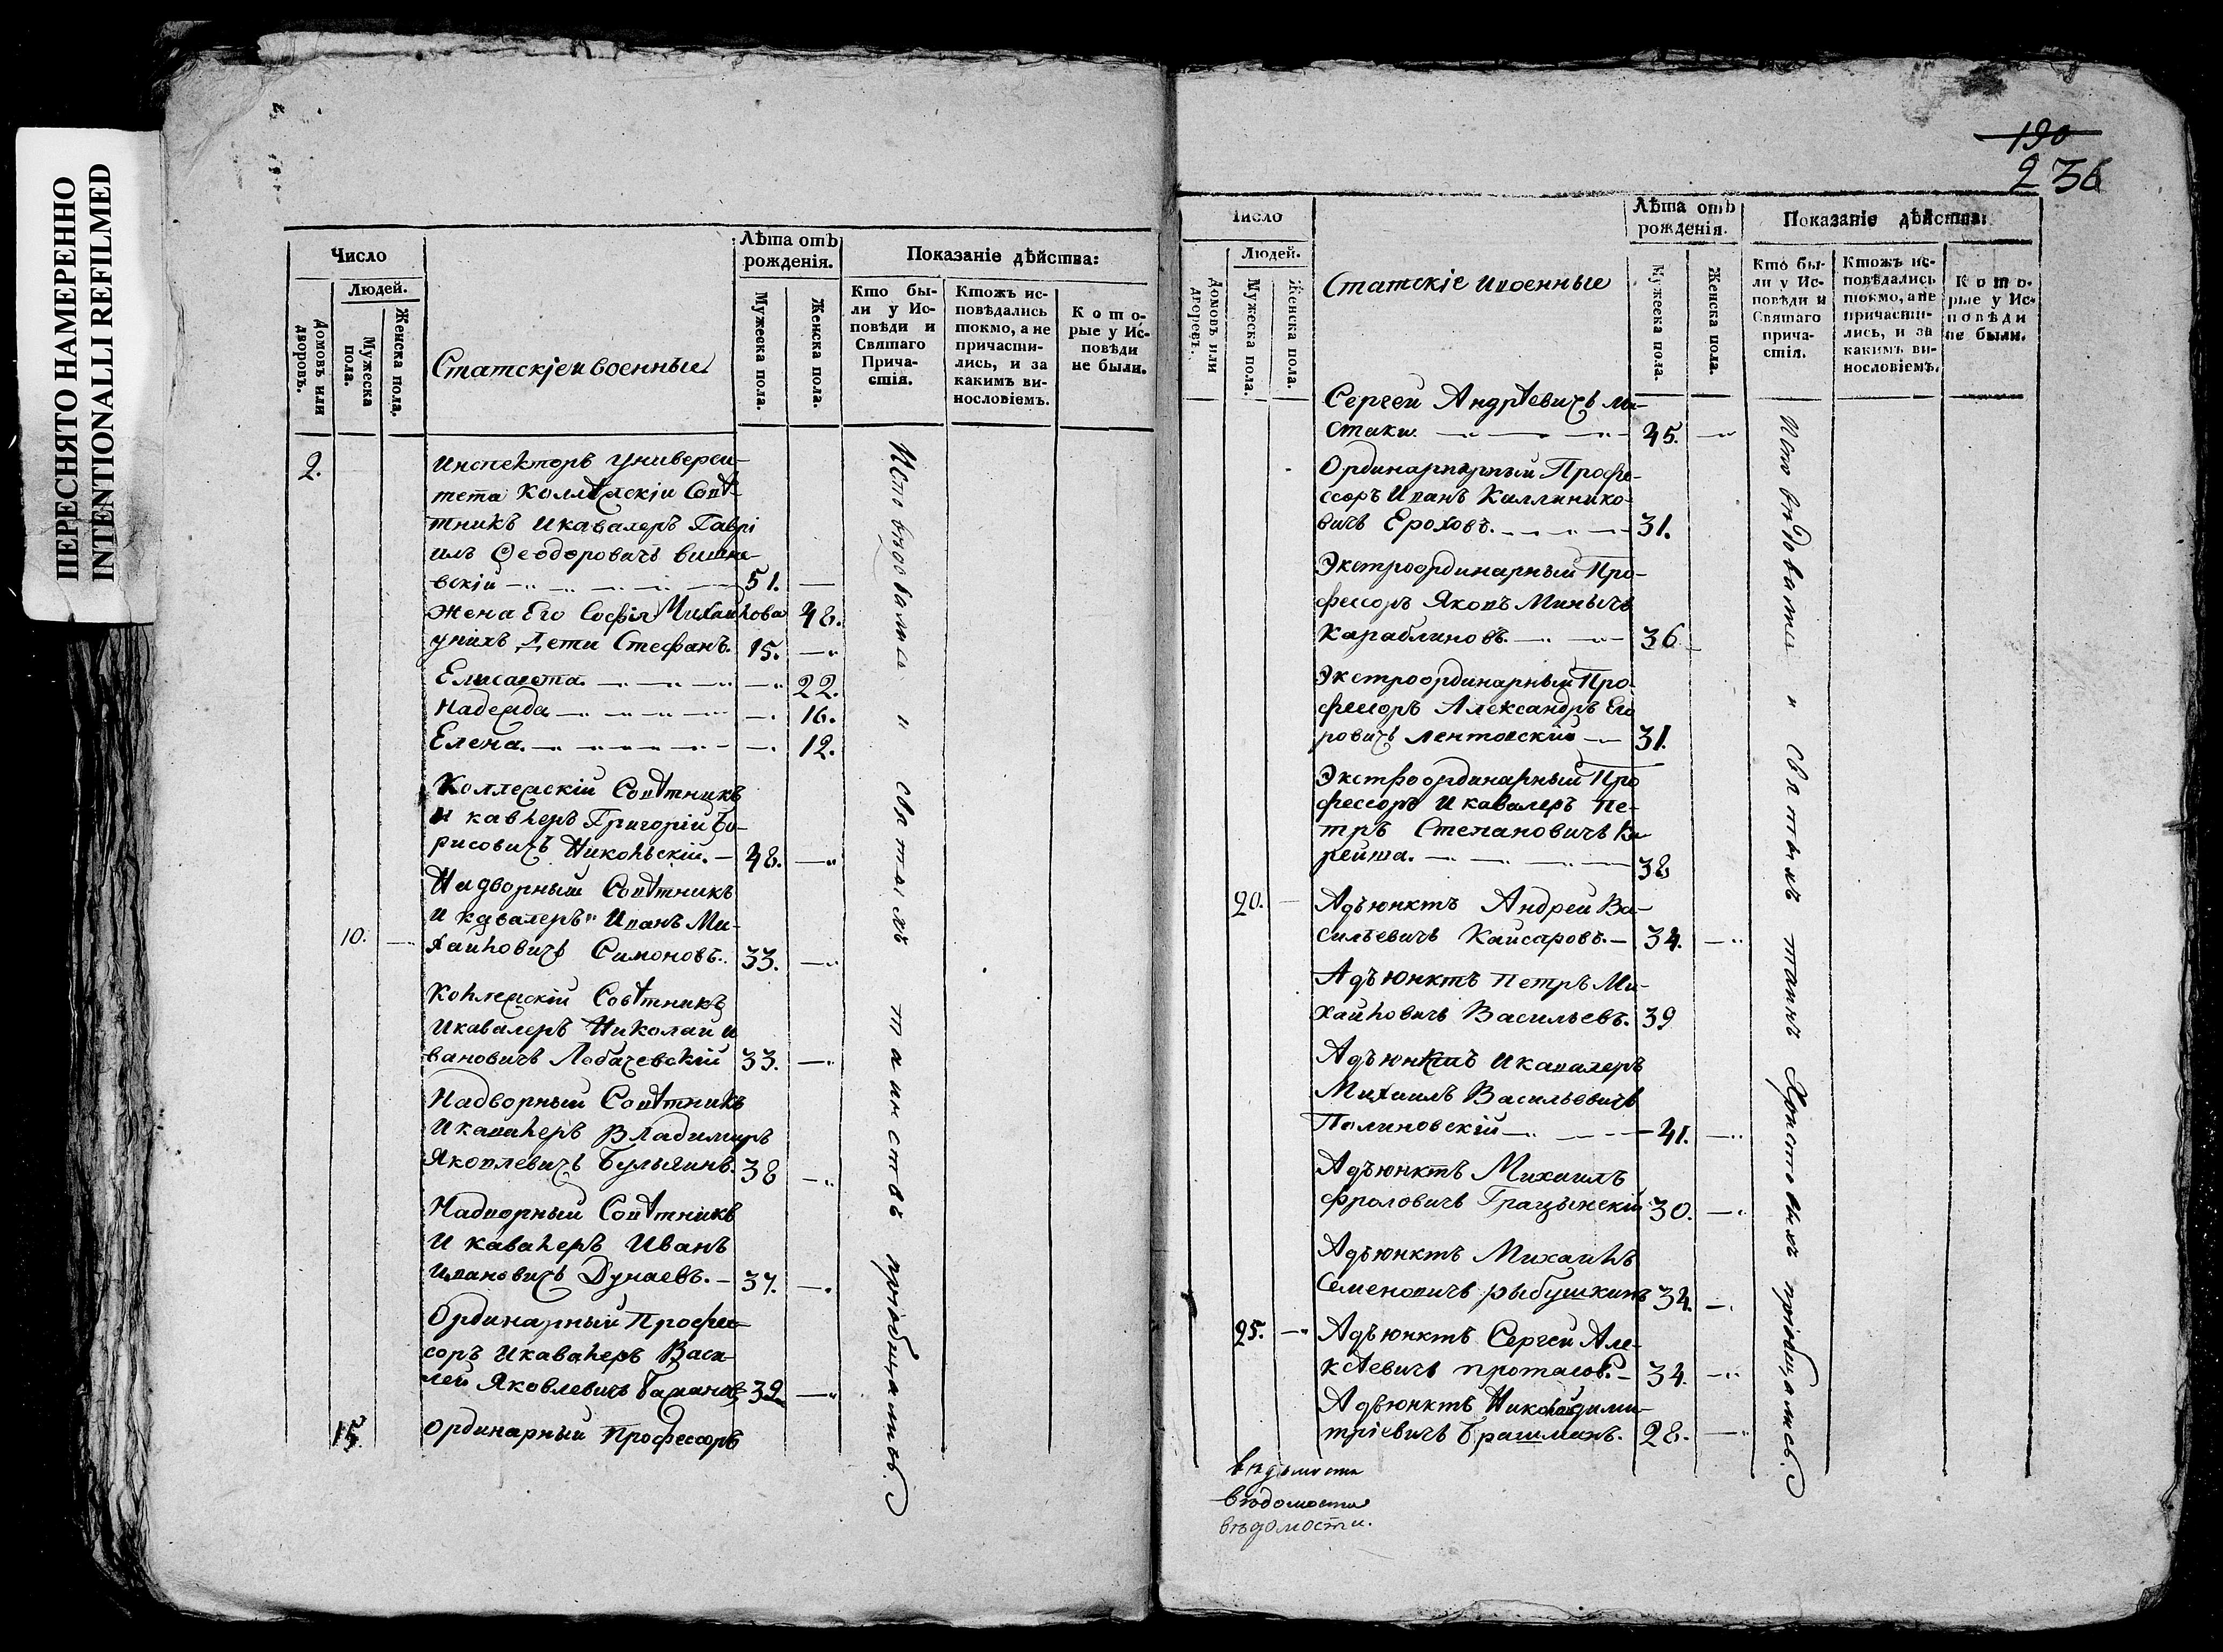 ПЕРЕСНЯТО НАМЕРЕННО
INTENTIONALLI REFILMED
Число
Людей.
Домовъ или дворовъ.
Мужеска пола.
Женска пола.
Статскіе и военные
Лѣта отъ рожденія.
Мужеска пола.
Женска пола.
Показаніе дѣйства:
Кто бы-
ли у Ис-
повѣди и
Святаго
Прича-
стія.
Ктожъ ис-
повѣдались
токмо, а не
причасти-
лись, и за
какимъ ви-
нословіемъ.
Кото-
рые у Ис-
повѣди
не были.
2.
Инспекторъ универси-
тета Коллежскіи Совѣ-
тникъ И кавалеръ Гаврі
илъ Ѳеодоровичъ вишне-
вскій 51.
Жена Его Софія Михаилова 48.
у нихъ Дети Стефанъ. 15.
Елисавета. 22.
Надежда 16.
Елена. 12.
Коллежскій Совѣтникъ
И кавлеръ Григорій Бо-
рисовичъ Никольскіи. 48.
Надворныи Совѣтникъ
И кавалеръ Иванъ Ми-
10. хаиловичъ Симоновъ. 33.
Коллежскіи Совѣтникъ
И кавалеръ Николаи И
вановичъ Лобачевскій 33.
Надворныи Совѣтникъ
И кавалеръ Владимиръ
Яковлевичъ Булыгинъ. 38
Надворныи Совѣтникъ
И кавалеръ Иванъ
Ивановичъ Дунаевъ. 37.
Ординарныи Профес-
соръ И кавалеръ Васи-
леи Яковлевичъ Бажановъ 32
15. Ординарныи Профессоръ
Исповѣдовались и святыхъ таинствъ пріобщались.
190
236
Число
Людей.
Домовъ или дворовъ.
Мужеска пола.
Женска пола.
Статскіе и военные
Лѣта отъ рожденія.
Мужеска пола.
Женска пола.
Показаніе дѣйства:
Кто бы-
ли у Ис-
повѣди и
Святаго
прича-
стія.
Ктожъ ис-
повѣдались
токмо, а не
причасти-
лись, и за
какимъ ви-
нословіемъ.
Кото-
рые у Ис-
повѣди
не были.
Сергеи Андрѣевичъ Ми-
стаки. 45.
Ординарнарныи Профе-
ссоръ Иванъ Каллинико-
вичъ Ероховъ. 31.
Экстроординарныи Про-
фессоръ Яковъ Минычъ
Караблиновъ. 36
Экстроординарныи Про-
фессоръ Александръ Его
ровичъ лентовскій 31.
Экстроординарныи Про
фессоръ И кавалеръ Пе-
тръ Степановичъ Ко
реиша. 38
20. Адъюнктъ Андреи Ва-
сильевичъ Каисаровъ. 34.
Адъюнктъ Петръ Ми-
хаиловичъ Васильевъ. 39
Адъюнктъ И кавалеръ
Михаилъ Васильевичъ
Полиновскій 41.
Адъюнктъ Михаилъ
Фроловичъ Грацынскій 30.
Адъюнктъ Михаилъ
Семеновичъ рыбушкинъ 34.
25. Адъюнктъ Сергеи Але-
ксѣевичъ протасовъ. 34.
Адъюнктъ Николаи Дими-
тріевичъ Брашманъ. 28.
Исповѣдовались и святыхъ таинъ Христовыхъ пріобщались.
вѣдомости
вѣдомости
вѣдомости.